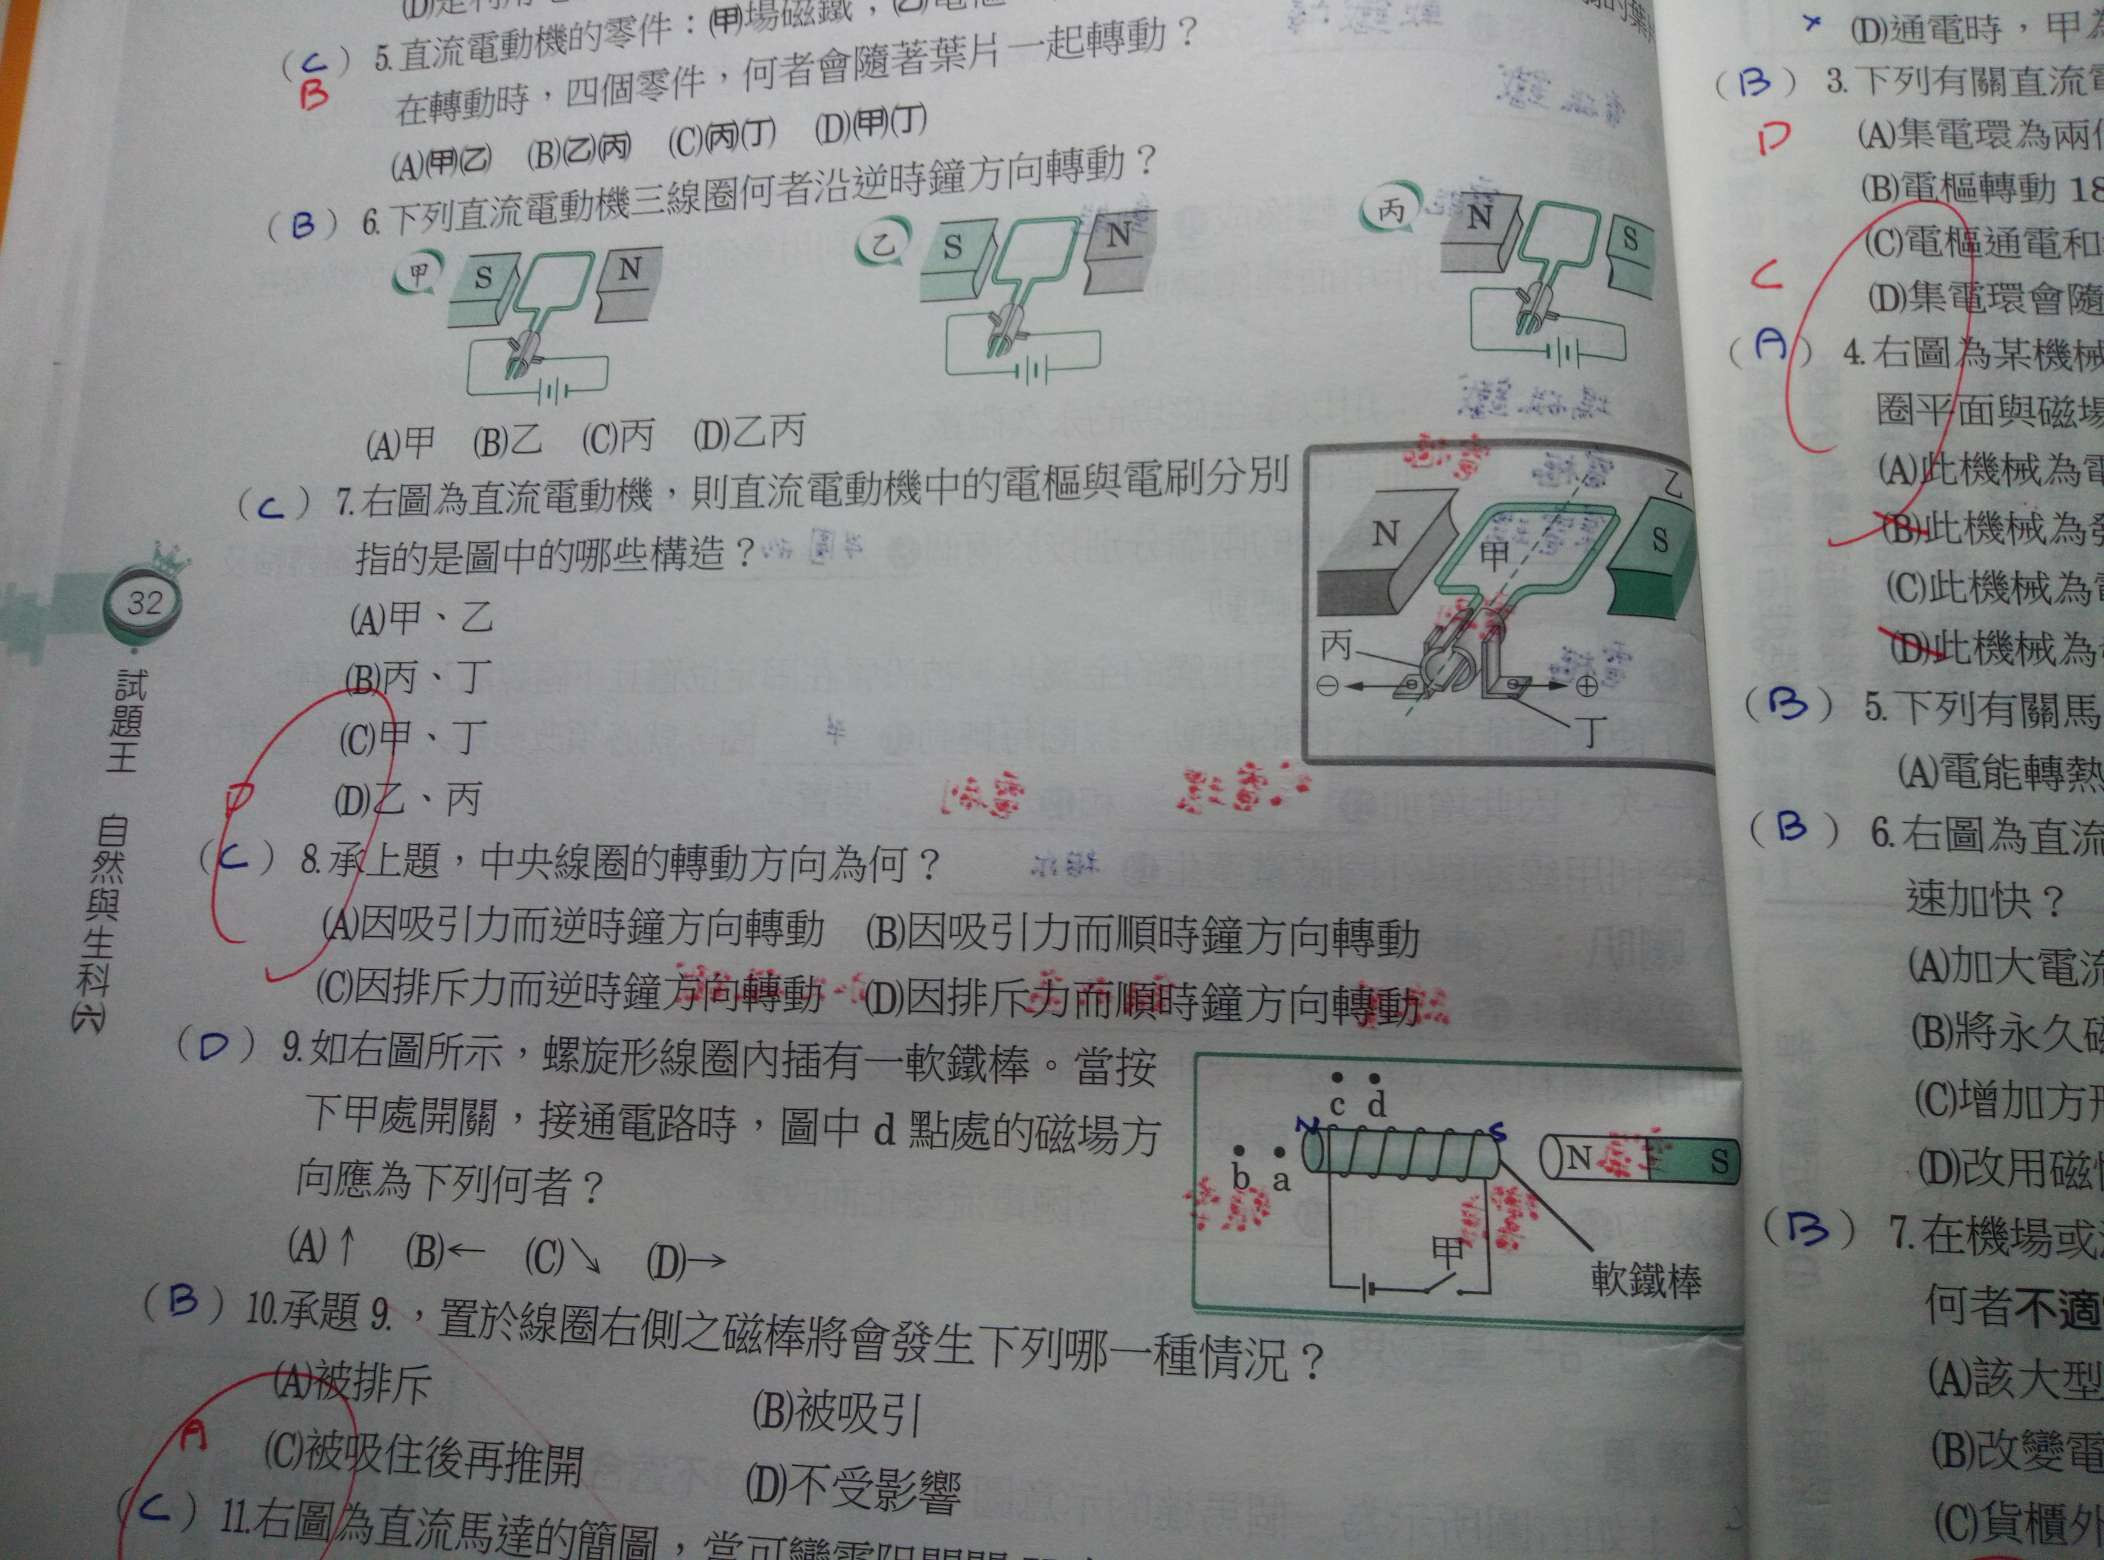 (C) 5.直流電動機的零件：(甲)場磁鐵，(乙)電樞
B
在轉動時，四個零件，何者會隨著葉片一起轉動？
(A)(甲)(乙) (B)(乙)(丙) (C)(丙)(丁) (D)(甲)(丁)
(B) 6.下列直流電動機三線圈何者沿逆時鐘方向轉動？
甲 S N
乙 S N
丙 N S
(A)甲 (B)乙 (C)丙 (D)乙丙
(C) 7.右圖為直流電動機，則直流電動機中的電樞與電刷分別
指的是圖中的哪些構造？
(A)甲、乙
(B)丙、丁
(C)甲、丁
(D)乙、丙
N 甲 乙 S
丙
⊖ ⊕
丁
D
(C) 8.承上題，中央線圈的轉動方向為何？
(A)因吸引力而逆時鐘方向轉動 (B)因吸引力而順時鐘方向轉動
(C)因排斥力而逆時鐘方向轉動 (D)因排斥力而順時鐘方向轉動
(D) 9.如右圖所示，螺旋形線圈內插有一軟鐵棒。當按
下甲處開關，接通電路時，圖中 d 點處的磁場方
向應為下列何者？
(A)↑ (B)← (C)↘ (D)→
c d
N S
b a
N S
甲
軟鐵棒
(B) 10.承題 9.，置於線圈右側之磁棒將會發生下列哪一種情況？
(A)被排斥 (B)被吸引
(C)被吸住後再推開 (D)不受影響
A
(C) 11.右圖為直流馬達的簡圖，當可變電阻
32
試題王 自然與生科(六)
(D)通電時，甲
(B) 3.下列有關直流
D
(A)集電環為兩
(B)電樞轉動 18
(C)電樞通電和
(D)集電環會隨
C
(A) 4.右圖為某機械
圈平面與磁場
(A)此機械為
(B)此機械為
(C)此機械為
(D)此機械為
(B) 5.下列有關馬
(A)電能轉熱
(B) 6.右圖為直流
速加快？
(A)加大電流
(B)將永久
(C)增加方
(D)改用磁
(B) 7.在機場或
何者不適
(A)該大型
(B)改變電
(C)貨櫃外